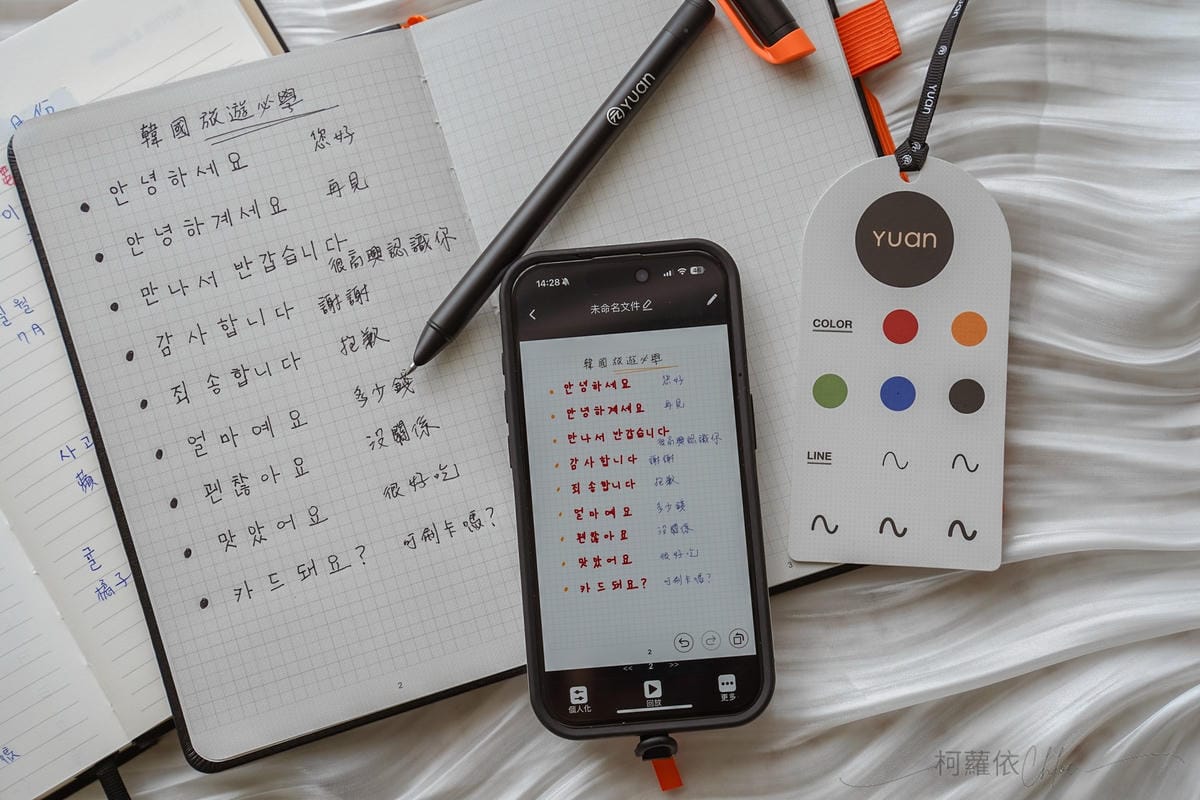 韓國旅遊必學
안녕하세요 您好
안녕하계세요 再見
만나서 반갑습니다 很高興認識你
감사합니다 謝謝
죄송합니다 抱歉
얼마예요 多少錢
괜찮아요 沒關係
맛았어요 很好吃
카드돼요? 可刷卡嗎?
2
사고
蘋
귤
橘子
7月
YUAN
14:28
48
未命名文件
韓國旅遊必學
안녕하세요 您好
안녕하계세요 再見
만나서 반갑습니다
很高興認識你
감사합니다 謝謝
죄송합니다 抱歉
얼마예요 多少錢
괜찮아요 沒關係
맛았어요 很好吃
카드돼요? 可刷卡嗎?
2
<< 2 >>
個人化 回放 更多
Yuan
YUan
COLOR
LINE
3
柯蘿依 Chloe